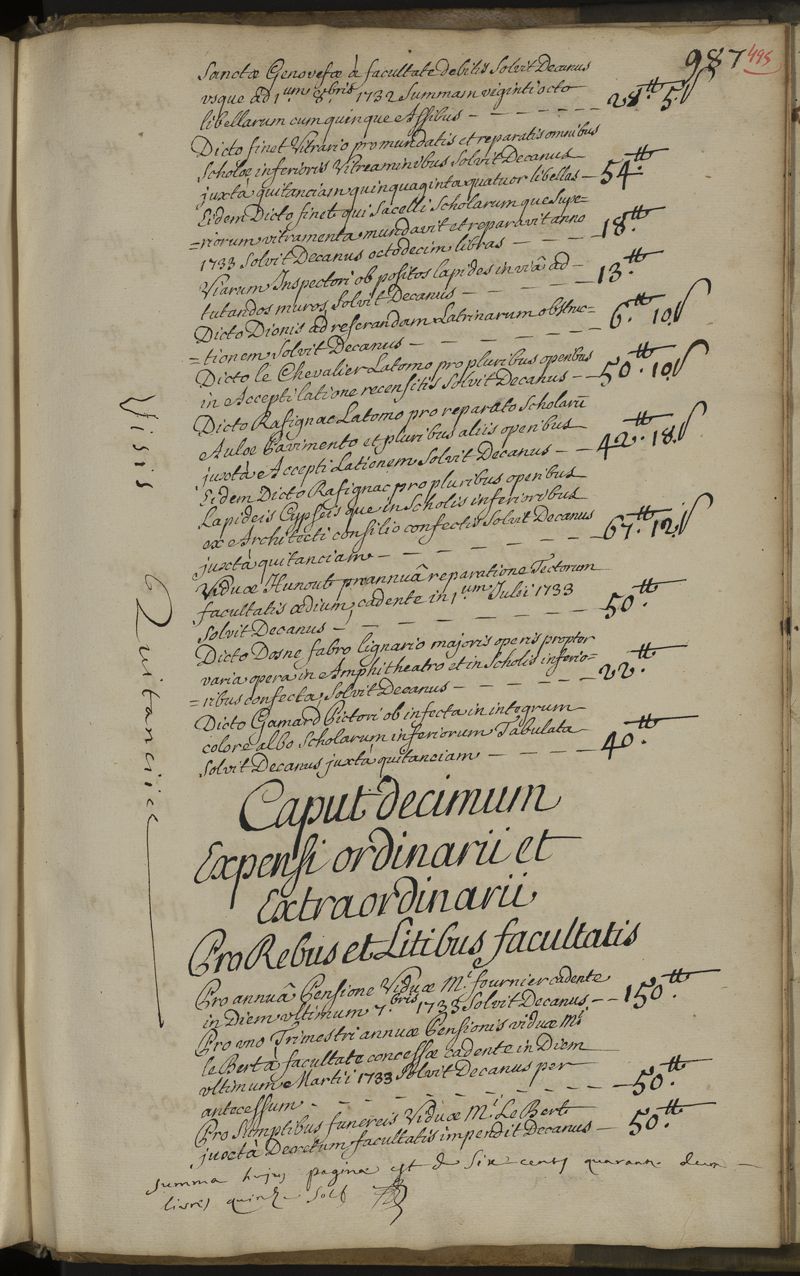 987 495
Sanctæ Genovefæ à facultate debitis Solvit Decanus
vsque ad 1um 8bris 1732 Summam viginti octo
libellarum cum quinque Assibus — — — — — — 28.tt 5.s
Dicto finet Vitrario pro mundatis et reparatis omnibus
Scholæ inferioris Vitreaminibus Solvit Decanus
juxtà quitanciam quinquaginta quatuor libellas — 54.tt
Eidem Dicto finet qui Sacelli Scholarumque Supe=
=riorum vitramenta mundavit et reparavit anno
1733 Solvit Decanus octodecim libras — — — — 18.tt
Viarum Inspectori ob positos lapides in viâ ad —
tutandos muros Solvit Decanus — — — — — 13.tt
Dicto Dionis ad reserandam Latrinarum obstruc=
=tionem Solvit Decanus — — — — — — 6.tt 10.s
Dicto le Chevalier Latomo pro pluribus operibus
in Acceptilatione recensitis Solvit Decanus — — 50.tt 10.s
Dicto Rasignac Latomo pro reparato Scholarū
Aulæ Pavimento et pluribus aliis operibus
juxtà Acceptilationem Solvit Decanus — — 42.tt 18.s
Eidem Dicto Rasignac pro pluribus operibus
Lapideis Gypseisque in Scholis inferioribus
ex Architecti consilio confectis Solvit Decanus
juxtà quitanciam — — — — — — — 67.tt 12.s
Viduæ Hunout pro annuâ reparatione Tectorum
facultatis ædium cadente in 1um Julii 1733
Solvit Decanus — — — — — — — 50.tt
Dicto Dosne fabro lignario majoris operis propter
varia opera in Amphitheatro et in Scholis inferio=
=ribus confecta Solvit Decanus — — — — — 22.tt
Dicto Gamard Pictori ob infecta in integrum
colore albo Scholarum inferiorum Tabulata
Solvit Decanus juxtà quitanciam — — — — 40.tt
Visis Quitanciis
Caput decimum
Expensi ordinarii et
Extraordinarii
Pro Rebus et Litibus facultatis
Pro annuâ Pensione Viduæ Mi. fournier cadente
in Diem vltimum 7.bris 1733 Solvit Decanus — — 150.tt
Pro vno Trimestri annuæ Pensionis viduæ Mi
le Bert à facultate concessæ cadente in Diem
vltimum Martii 1733 Solvit Decanus per
antecessum — — — — — — — — — 50.tt
Pro Sumptibus funereis Viduæ Mi. Le Bert
juxtà Decretum facultatis impendit Decanus — 50.tt
Summa hujus paginæ est de Six cents quarante deux —
livres quinze Sols